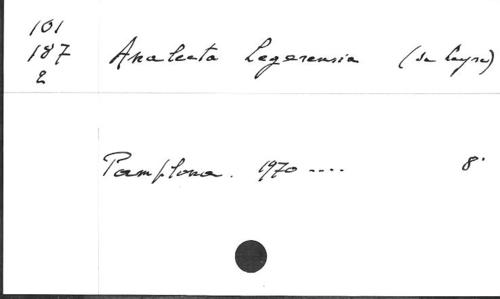 101
187 Analecta Legerensia (de Leyre)
2
Pamplona. 1970 .... 8º